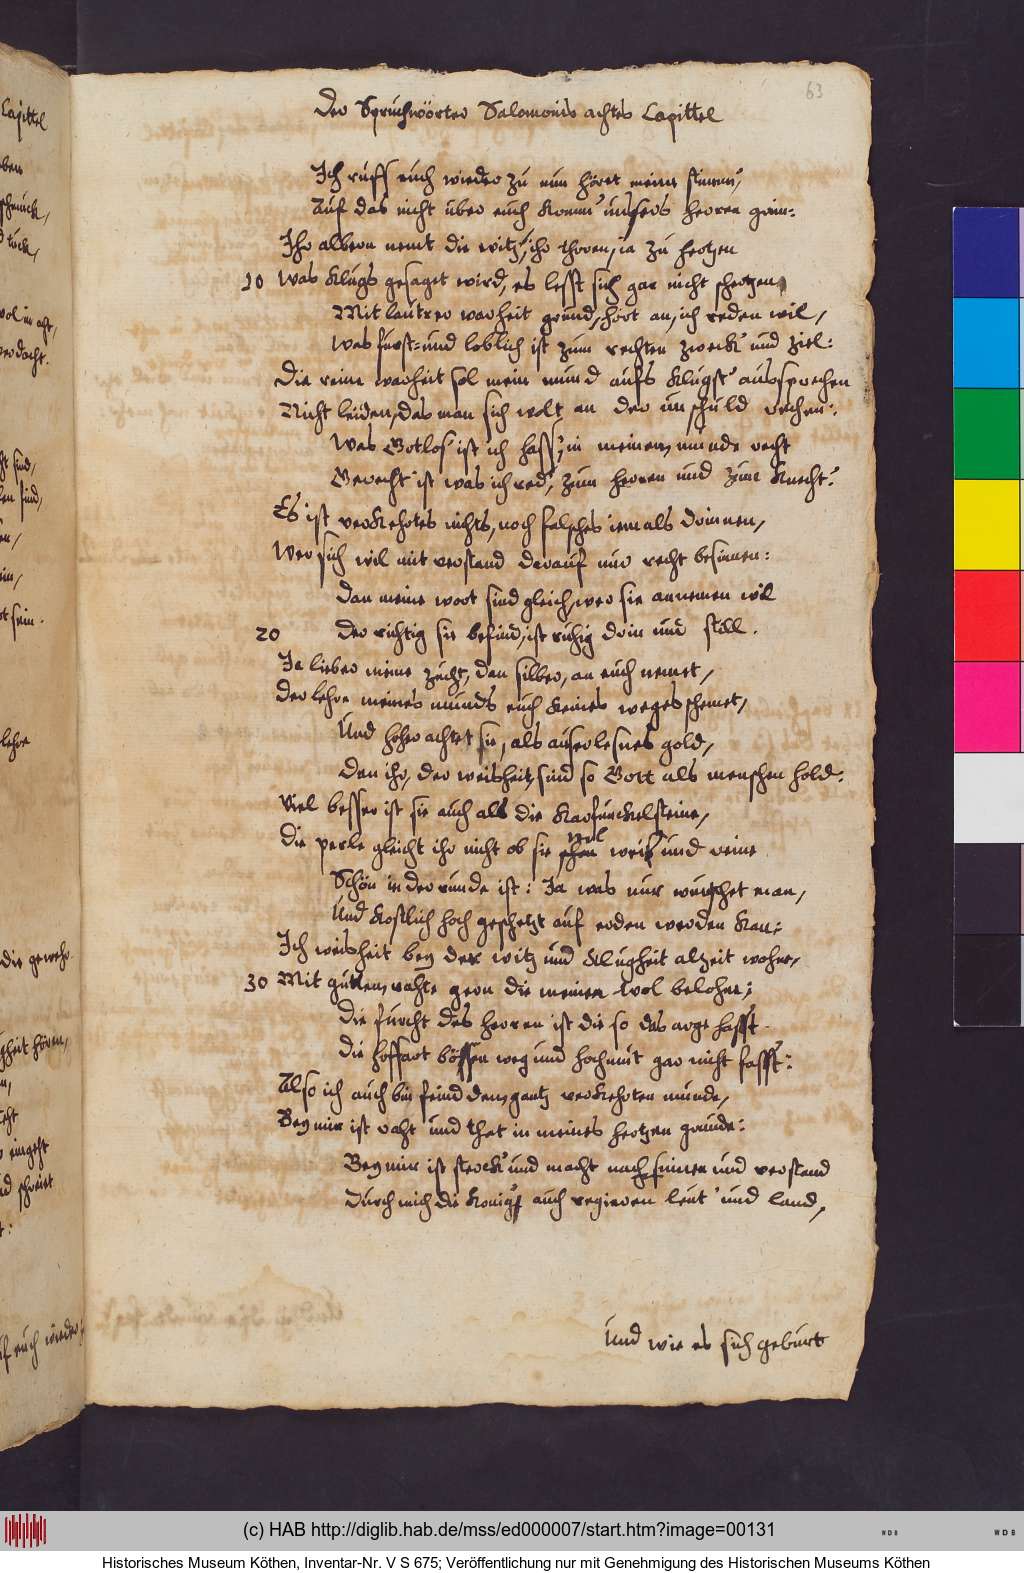 63
Der Spruchwörter Salomonis achtes Capittel
Ich ruff euch wieder zu nun höret meine stimm',
Auf das nicht über euch komm' unsers herren grim:
Ihr albern nemt die witz, ihr thoren, ia zu hertzen
10 Was klugs gesaget wird, es lesst sich gar nicht schertzen,
Mit lautrer warheit grund, hört an, ich reden wil,
Was furst- und loblich ist zum rechten zweck' und ziel:
Die reine warheit sol mein mund aufs klugst' aussprechen
Nicht leiden, das man sich wolt an der unschuld rechen:
Was Gotlos' ist ich hass', in meinem munde recht
Gerecht ist was ich red', zum herren und zum knecht:
Es ist verkehrtes nichts, noch falsches iemals drinnen,
Wer sich wil mit verstand darauf nur recht besinnen:
Dan meine wort sind gleich, wer sie annemen wil
20 der richtig sie befind, ist ruhig drin und still.
Ja lieber meine zucht, dan silber, an euch nemet,
Der lehre meines munds euch keines weges schemet,
Und hoher achtet sie, als auserlesnes gold,
Den ihr, der weisheit, sind so Gott als menschen hold:
Viel besser ist sie auch als die karfunckelsteine,
Die perle gleicht ihr nicht ob sie schon weis' und reine
wol
Schön in der runde ist: Ja was nur wunschet man,
Und kostlich hoch geschetzt auf erden werden kan:
Ich weisheit bey der witz und klugheit alzeit wohne,
30 Mit gutem rahte gern die meinen wol belohne:
Die furcht des herren ist die so das arge hasst
Die hoffart bösen weg und hochmut gar nicht fasst:
Also ich auch bin feind dem gantz verkehrten munde,
Bey mir ist raht und that in meines hertzen grunde:
Bey mir ist sterck' und macht nach sinnen und verstand
Durch mich die Konig' auch regieren leut' und land,
Und wie es sich geburt
Capittel
(c) HAB http://diglib.hab.de/mss/ed000007/start.htm?image=00131
Historisches Museum Köthen, Inventar-Nr. V S 675; Veröffentlichung nur mit Genehmigung des Historischen Museums Köthen